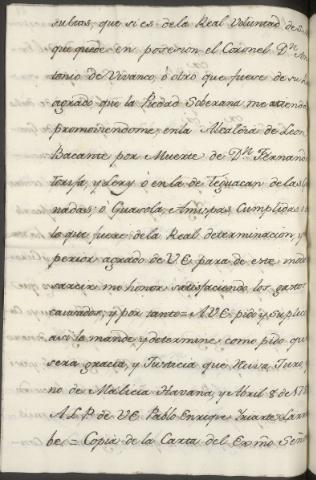 sultas; que si es de la Real voluntad de
que quede en posesion el Coronel Dn. An
tonio de Vivanco, ó otro que fuere de su
agrado que la Piedad Soberana me atienda
promoviendome, en la Alcaldia de Leon
Bacante por Muerte de Dn. Fernando
Torija, y Lory ó en la de Teguacan de las
nadas; ó Guaxola, Amispas Cumplidas
lo que fuere de la Real determinacion, y
perior agrado de V.E. para de este mo
sarcir me honor satisfaciendo los gastos
causados, y por tanto = A V.E. pido y suplico
asi lo mande y determine como pido que
sera gracia, y Justicia que Reciva, Juro
no de Malicia Havana, y Abril 8 de
A.L.P. de V.E. Pablo Enrique Yriarte Larra
be = Copia de la Carta del Exmo Señ